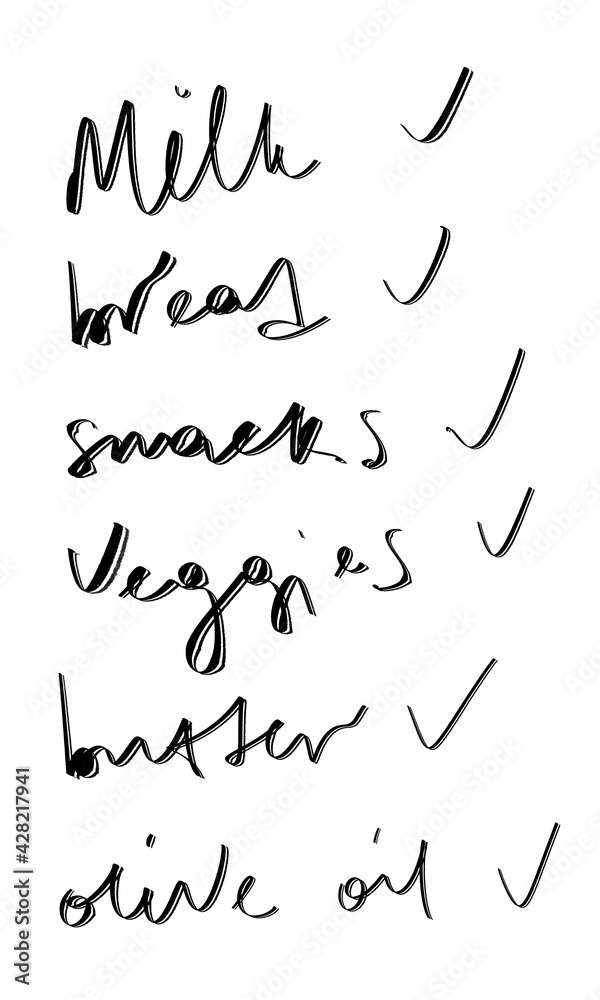 Milk ✓
bread ✓
snacks ✓
veggies ✓
butter ✓
olive oil ✓
Adobe Stock | #428217941